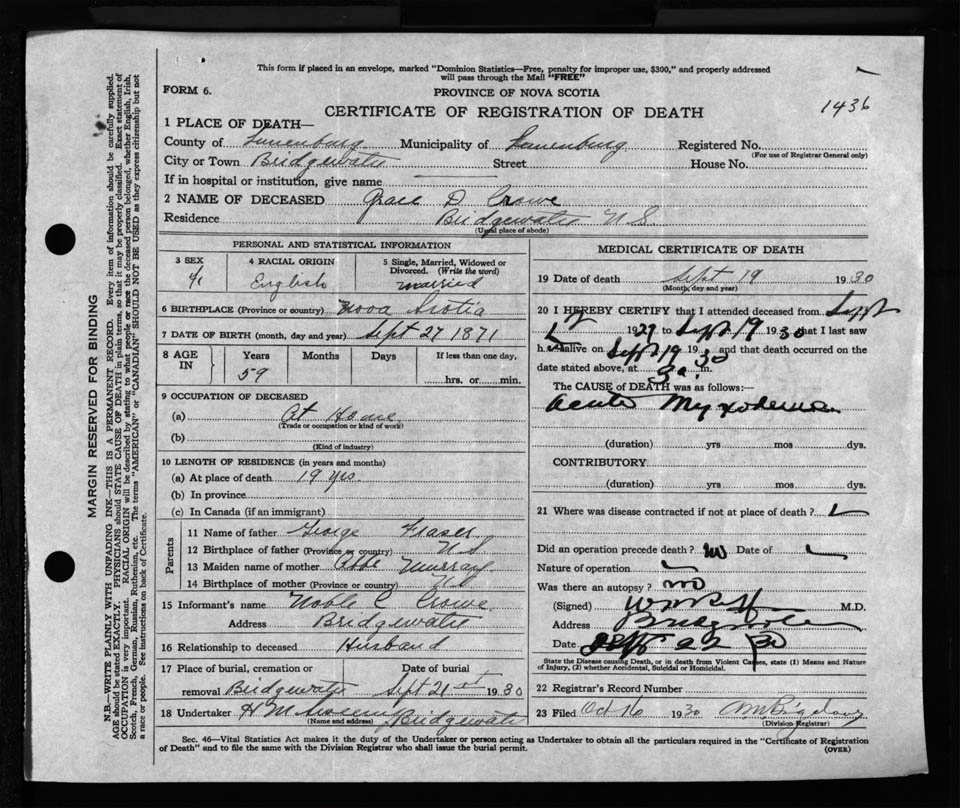 This form if placed in an envelope, marked "Dominion Statistics—Free, penalty for improper use, $300," and properly addressed
will pass through the Mail "FREE"
FORM 6.
PROVINCE OF NOVA SCOTIA
1436
CERTIFICATE OF REGISTRATION OF DEATH
1 PLACE OF DEATH—
County of Lunenburg Municipality of Lunenburg Registered No.
(For use of Registrar General only)
City or Town Bridgewater Street House No.
If in hospital or institution, give name
2 NAME OF DECEASED Grace D. Crowe
Residence Bridgewater N.S.
(Usual place of abode)
PERSONAL AND STATISTICAL INFORMATION
3 SEX 4 RACIAL ORIGIN 5 Single, Married, Widowed or
Divorced. (Write the word)
English married
6 BIRTHPLACE (Province or country) Nova Scotia
7 DATE OF BIRTH (month, day and year) Sept 27 1871
8 AGE IN Years Months Days If less than one day,
59 hrs. or min.
9 OCCUPATION OF DECEASED
(a) At Home
(Trade or occupation or kind of work)
(b)
(Kind of industry)
10 LENGTH OF RESIDENCE (in years and months)
(a) At place of death 19 yrs.
(b) In province
(c) In Canada (if an immigrant)
Parents
11 Name of father George Fraser
12 Birthplace of father (Province or country) N S
13 Maiden name of mother Murray
14 Birthplace of mother (Province or country) N S
15 Informant's name Noble C Crowe
Address Bridgewater
16 Relationship to deceased Husband
17 Place of burial, cremation or Date of burial
removal Bridgewater Sept 21st 1930
18 Undertaker H M Bridgewater
(Name and address)
MEDICAL CERTIFICATE OF DEATH
19 Date of death Sept 19 1930
(Month, day and year)
20 I HEREBY CERTIFY that I attended deceased from Sept
1929 to Sept 19 1930 that I last saw
h alive on Sept 19 1930 and that death occurred on the
date stated above, at 3 a. m.
The CAUSE of DEATH was as follows:—
Acute Myxodema
(duration) yrs mos dys.
CONTRIBUTORY
(duration) yrs mos dys.
21 Where was disease contracted if not at place of death?
Did an operation precede death? no Date of
Nature of operation
Was there an autopsy? no
(Signed) M.D.
Address Bridgewater
Date Sept 22 30
State the Disease causing Death, or in death from Violent Causes, state (1) Means and Nature
of Injury, (2) whether Accidental, Suicidal or Homicidal.
22 Registrar's Record Number
23 Filed Oct 16 1930
(Division Registrar)
Sec. 46—Vital Statistics Act makes it the duty of the Undertaker or person acting as Undertaker to obtain all the particulars required in the "Certificate of Registration
of Death" and to file the same with the Division Registrar who shall issue the burial permit.
(OVER)
MARGIN RESERVED FOR BINDING
N.B.—WRITE PLAINLY WITH UNFADING INK—THIS IS A PERMANENT RECORD. Every item of information should be carefully supplied.
AGE should be stated EXACTLY. PHYSICIANS should STATE CAUSE OF DEATH in plain terms, so that it may be properly classified. Exact statement of
OCCUPATION is very important. RACIAL ORIGIN will be described by stating to what people or race the deceased person belonged, whether English, Irish,
Scotch, French, German, Russian, Ruthenian, etc. The terms "AMERICAN" or "CANADIAN" SHOULD NOT BE USED as they express citizenship but not
a race or people. See instructions on back of Certificate.